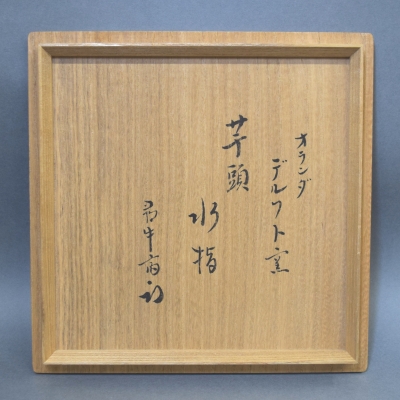 オランダ
デルフト窯
芋頭
水指